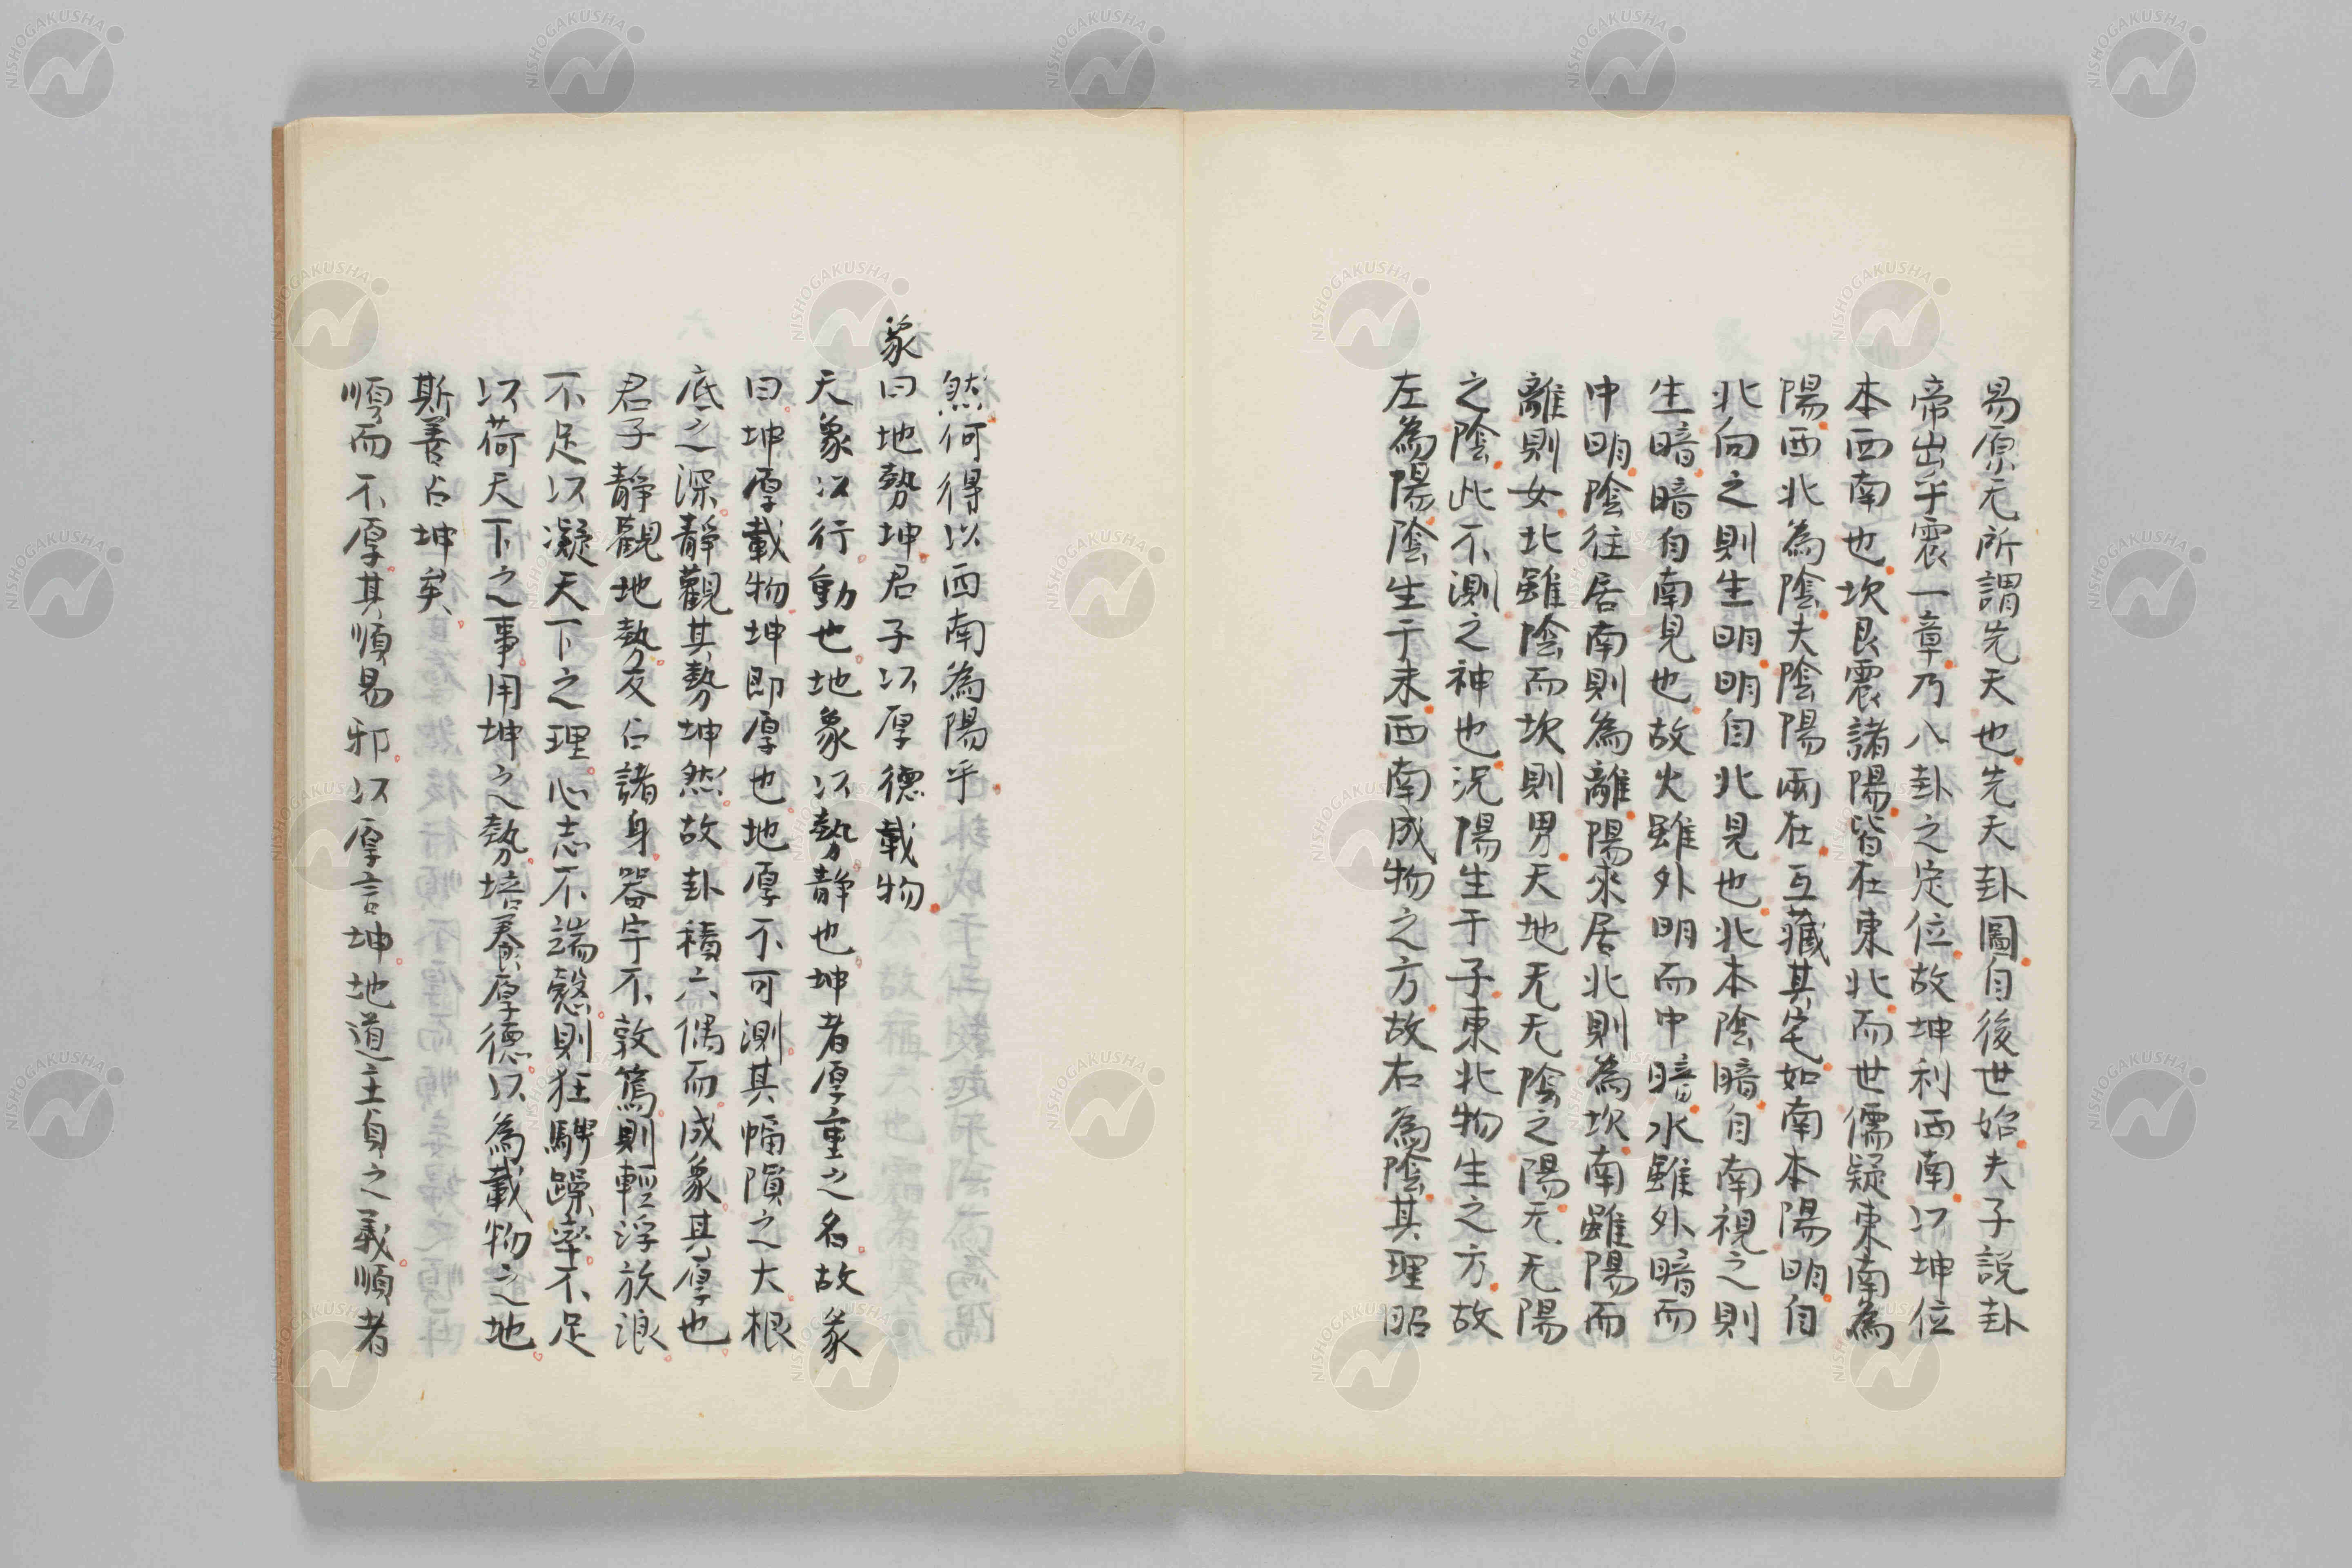 易原无所謂先天也先天卦圖自後世始夫子說卦
帝出乎震一章乃八卦之定位故坤利西南以坤位
本西南也坎艮震諸陽皆在東北而世儒疑東南為
陽西北為陰夫陰陽兩在互藏其宅如南本陽明自
北向之則生明明自北見也北本陰暗自南視之則
生暗暗自南見也故火雖外明而中暗水雖外暗而
中明陰往居南則為離陽來居北則為坎南雖陽而
離則女北雖陰而坎則男天地无无陰之陽无无陽
之陰此不測之神也況陽生于子東北物生之方故
左為陽陰生于未西南成物之方故右為陰其理昭
然何得以西南為陽乎
象曰地勢坤君子以厚德載物
天象以行動也地象以勢靜也坤者厚重之名故象
曰坤厚載物坤即厚也地厚不可測其幅隕之大根
底之深靜觀其勢坤然故卦積六偶而成象其厚也
君子靜觀地勢反占諸身器宇不敦篤則輕浮放浪
不足以凝天下之理心志不端愨則狂騁躁率不足
以荷天下之事用坤之勢培養厚德以為載物之地
斯善占坤矣
順而不厚其順易邪以厚言坤地道主貞之義順者
NISHOGAKUSHA